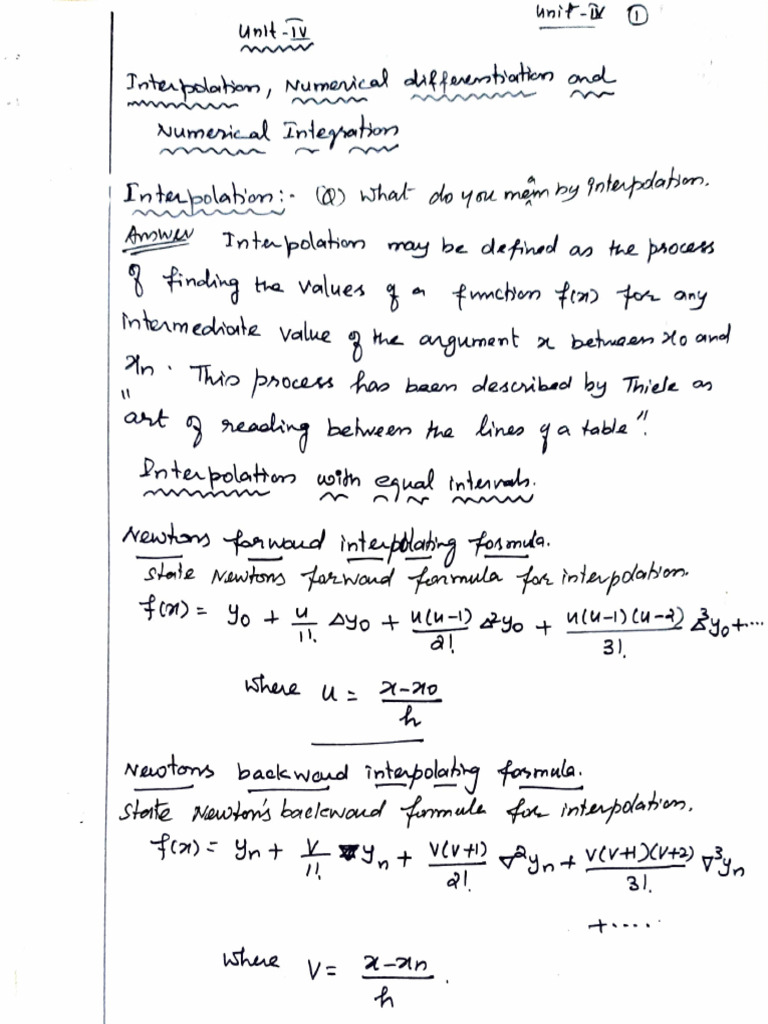 Unit-IV ①
Unit-IV
Interpolation, Numerical differentiation and
Numerical Integration
Interpolation:- (Q) What do you mean by interpolation.
Answer Interpolation may be defined as the process
of finding the values of a function f(x) for any
intermediate value of the argument x between x₀ and
xₙ. This process has been described by Thiele as
"art of reading between the lines of a table".
Interpolation with equal intervals.
Newtons forward interpolating formula.
State Newtons forward formula for interpolation.
f(x) = y₀ + u/1! Δy₀ + u(u-1)/2! Δ²y₀ + u(u-1)(u-2)/3! Δ³y₀ + ...
where u = x-x₀/h
Newtons backward interpolating formula.
State Newton's backward formula for interpolation.
f(x) = yₙ + V/1! ∇yₙ + V(V+1)/2! ∇²yₙ + V(V+1)(V+2)/3! ∇³yₙ
+ ....
where V = x-xₙ/h.